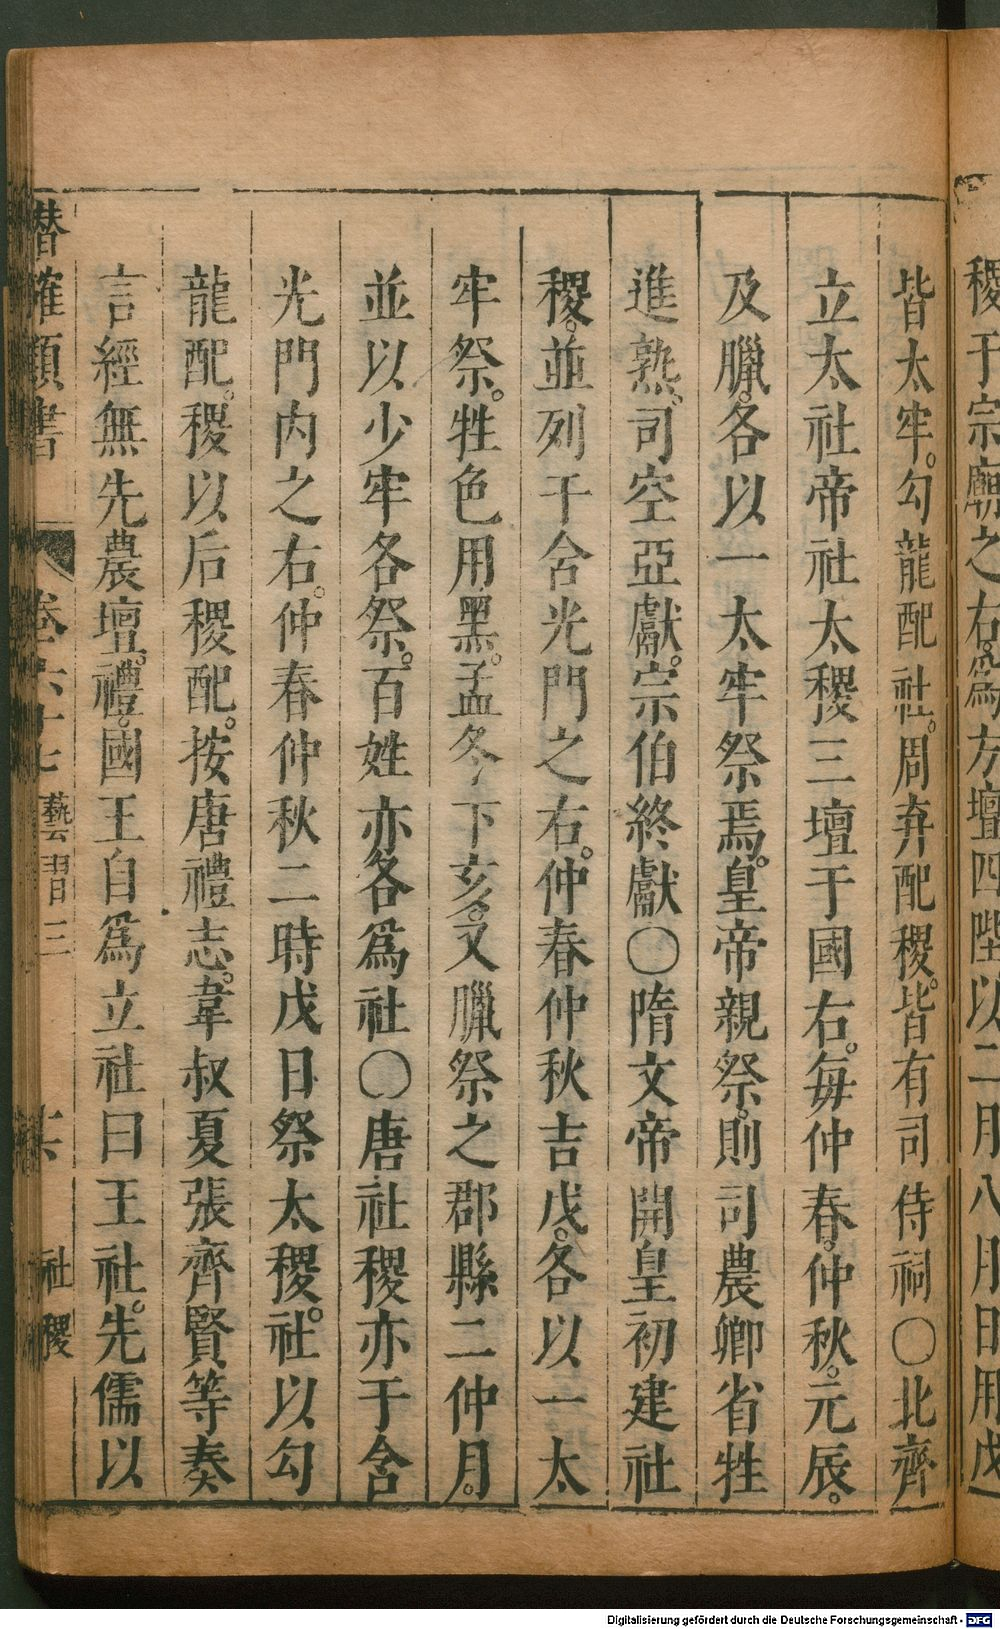 稷于宗廟之右。爲方壇四陛以二月八月日用戊
皆太牢。勾龍配社。周弃配稷。皆有司侍祠○北齊
立太社帝社太稷三壇于國右。每仲春。仲秋。元辰。
及臘。各以一太牢祭焉。皇帝親祭。則司農卿省牲
進熟。司空亞獻。宗伯終獻○隋文帝開皇初建社
稷。並列于含光門之右。仲春仲秋吉戊。各以一太
牢祭。牲色用黑。孟冬下亥。又臘祭之郡縣二仲月。
並以少牢各祭。百姓亦各爲社○唐社稷亦于含
光門內之右。仲春仲秋二時戊日祭太稷社。以勾
龍配。稷以后稷配。按唐禮志。韋叔夏張齊賢等奏
言經無先農壇。禮。國王自爲立社曰王社。先儒以
潛確類書 卷六十七 藝習三 社稷
Digitalisierung gefördert durch die Deutsche Forschungsgemeinschaft - DFG